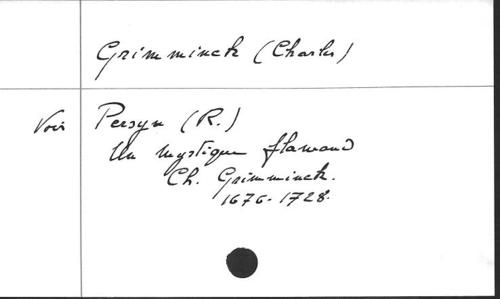 Grimminck (Charles)
Voir Persyn (R.)
Un mystique flamand
Ch. Grimminck.
1676-1728.